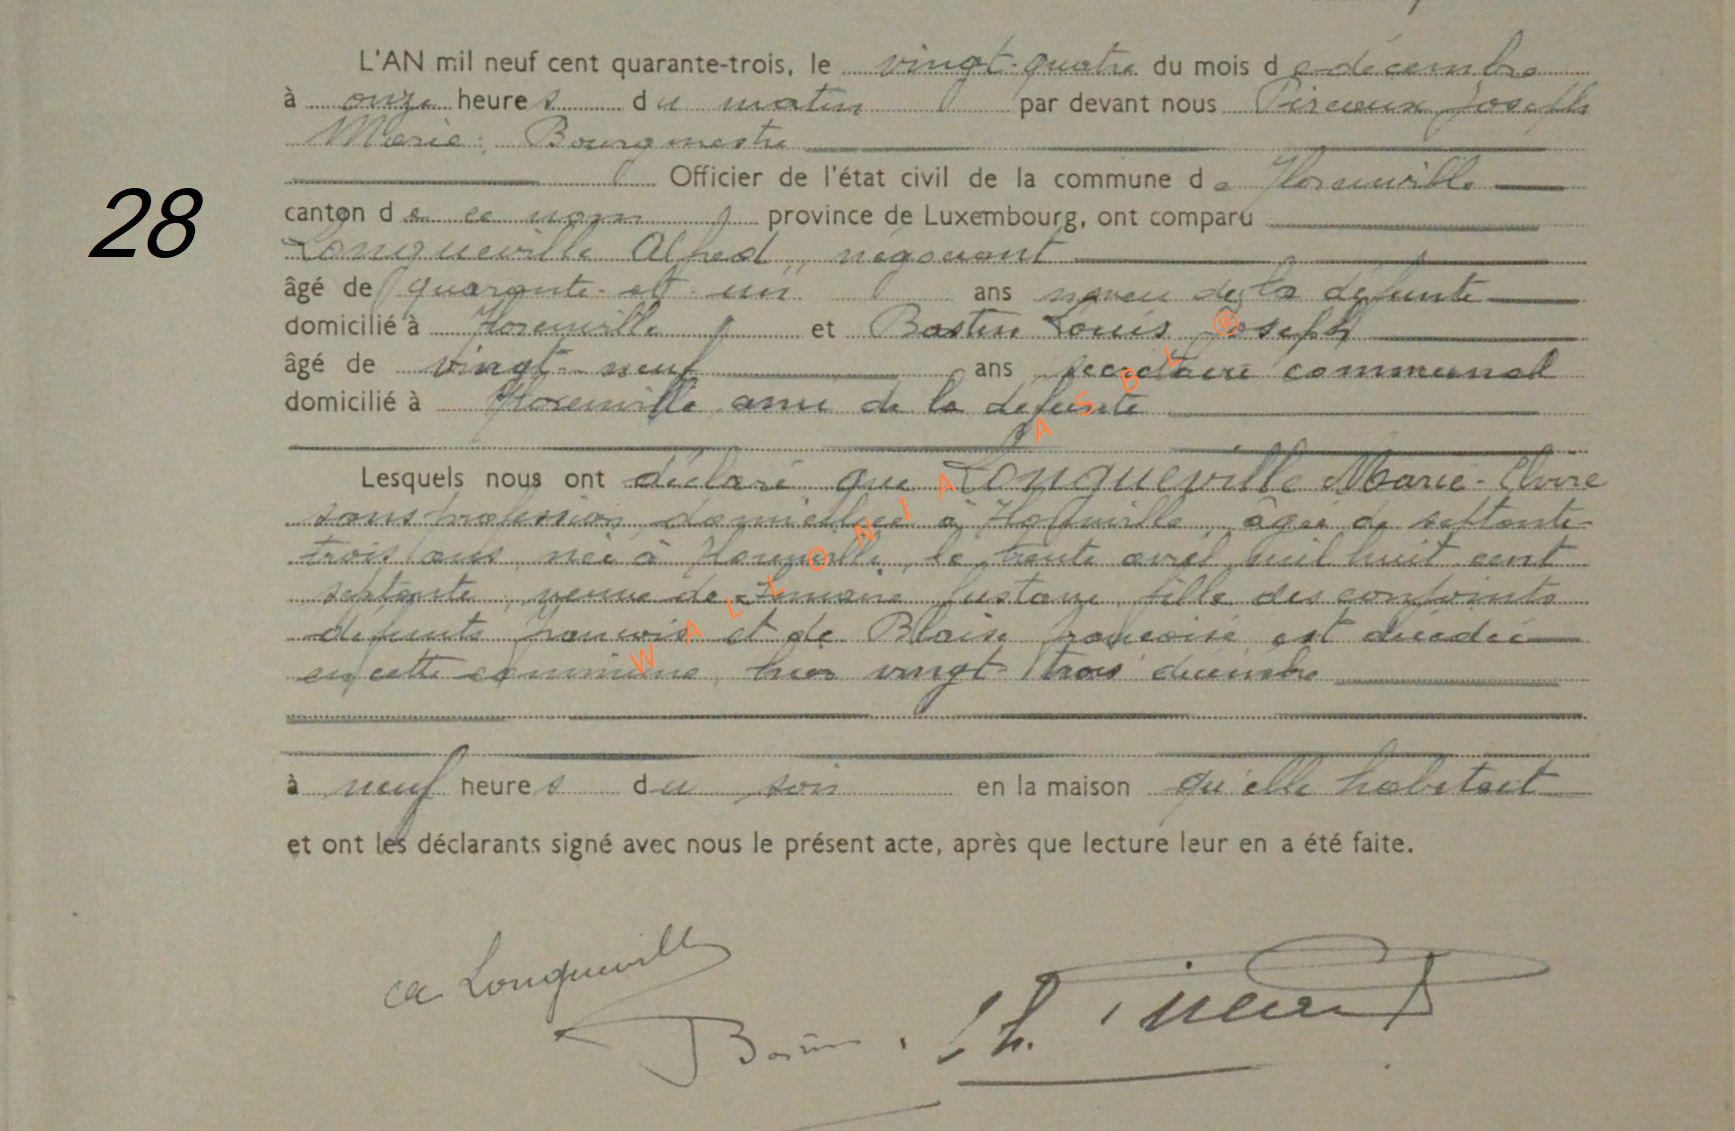 L'AN mil neuf cent quarante-trois, le vingt-quatre du mois de décembre
à onze heures du matin par devant nous Pireaux Joseph
Marie, Bourgmestre
28
Officier de l'état civil de la commune de Florenville
canton de ce nom province de Luxembourg, ont comparu
Longueville Alfred, négociant
âgé de quarante-et-un ans neveu de la défunte
domicilié à Florenville et Bastin Louis Joseph
âgé de vingt-neuf ans secrétaire communal
domicilié à Florenville ami de la défunte
Lesquels nous ont déclaré que Longueville Marie-Elvire
sans profession, domiciliée à Florenville, âgée de septante-
trois ans, née à Florenville, le trente avril mil huit cent
septante, veuve de Gustave, fille des conjoints
défunts François et de Blaise Françoise est décédée
en cette commune hier vingt-trois décembre
à neuf heures du soir en la maison qu'elle habitait
et ont les déclarants signé avec nous le présent acte, après que lecture leur en a été faite.
WALLONIA ASBL ®
a Longueville
Bastin